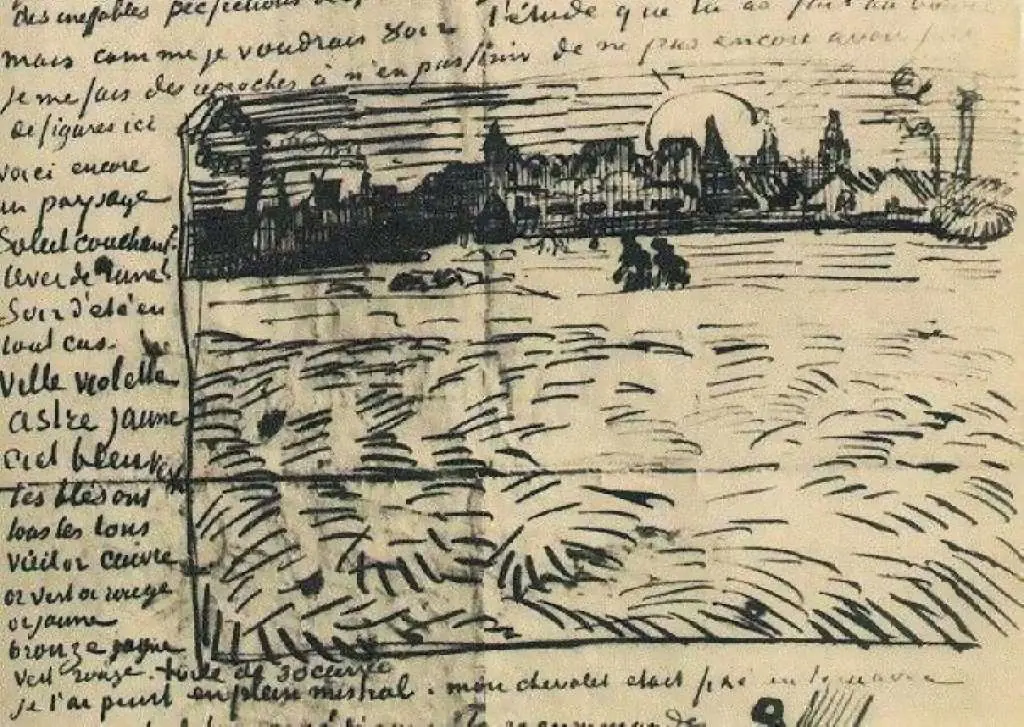 des ineffables perfections
l'étude que tu as
mais comme je voudrais voir
je me fais des reproches à n'en pas finir de ne pas encore avoir fait
de figures ici
voici encore
un paysage
Soleil couchant
lever de lune
Soir d'été en
tout cas.
Ville violette
astre jaune
ciel bleu vert
les blés ont
tous les tons
vieil or cuivre
or vert or rouge
or jaune
bronze jaune
vert rouge. toile de 30 carrée
je l'ai peint en plein mistral. mon chevalet etait fixé en